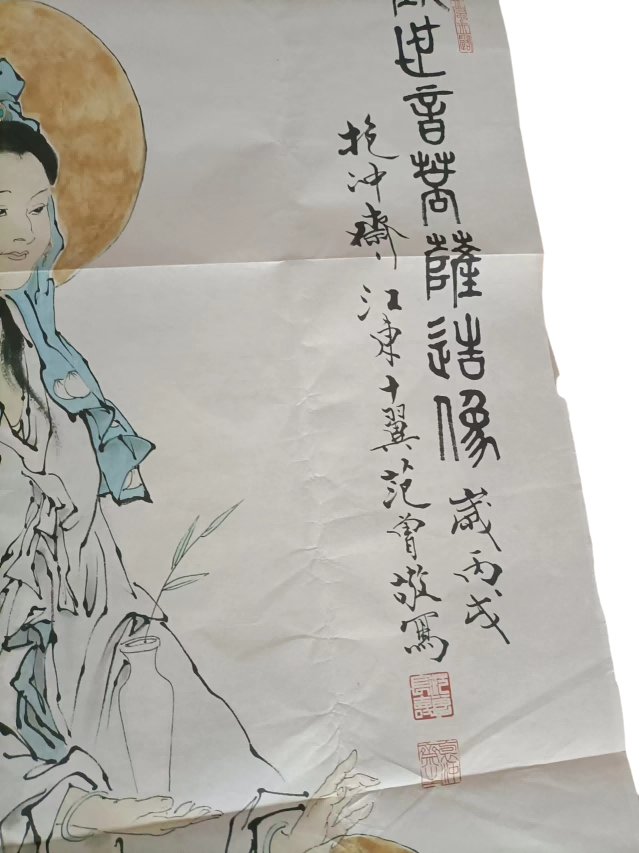 世音菩薩造像 歲丙戌
抱冲齋江東十翼范曾敬寫